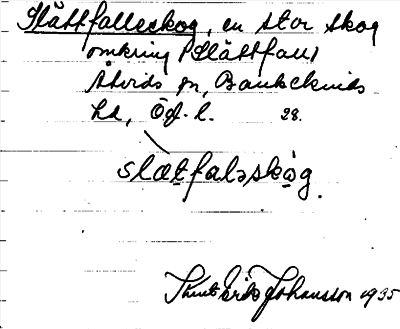 Slättfalleskog, en stor skog
omkring Slättfall,
Åtvids sn, Bankekinds
hd, Ög. l. 28.
slætfalaskåg.
Knut Erik Johansson 1935